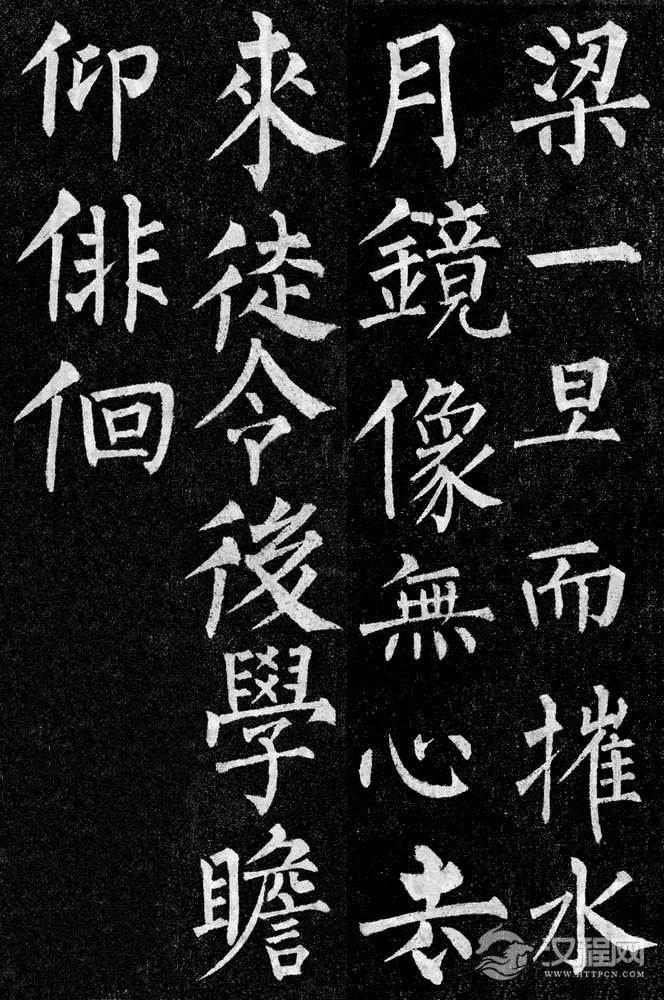 梁一旦而摧水
月鏡像無心去
來徒令後學瞻
仰俳佪
汉程网
WWW.HTTPCN.COM